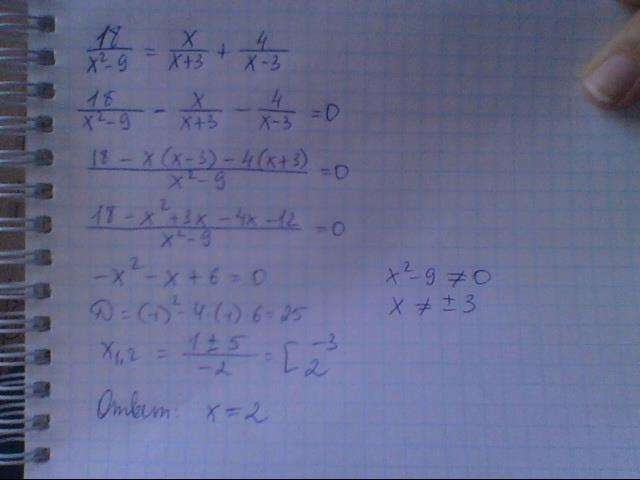 18/(x²-9) = x/(x+3) + 4/(x-3)
18/(x²-9) - x/(x+3) - 4/(x-3) = 0
(18 - x(x-3) - 4(x+3))/(x²-9) = 0
(18 - x² + 3x - 4x - 12)/(x²-9) = 0
-x² - x + 6 = 0
D = (-1)² - 4(-1)6 = 25
x₁,₂ = (1 ± 5)/(-2) = [ -3 2
Ответ: x = 2
x² - 9 ≠ 0
x ≠ ± 3